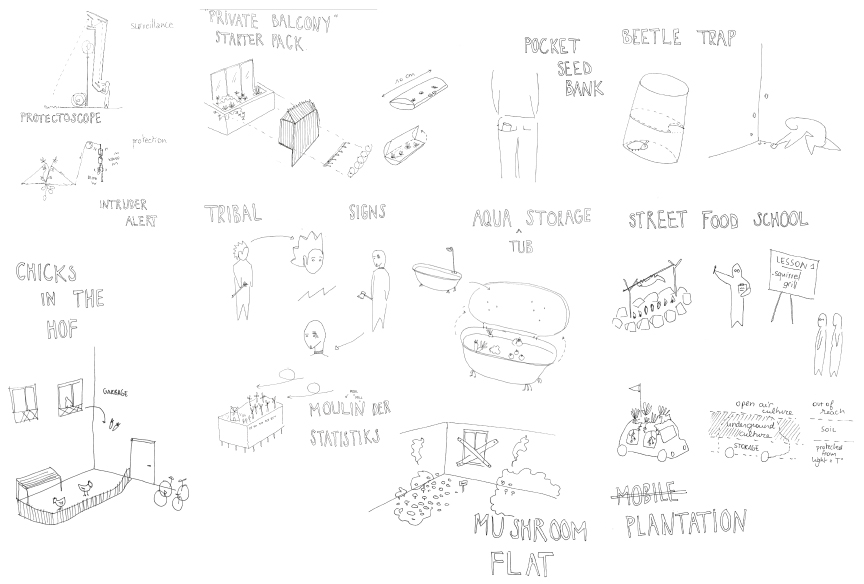 surveillance
PROTECTOSCOPE
protection
INTRUDER
ALERT
"PRIVATE BALCONY"
STARTER PACK
POCKET
SEED
BANK
BEETLE TRAP
TRIBAL SIGNS
AQUA STORAGE
TUB
STREET FOOD SCHOOL
LESSON 1
squirrel
grill
CHICKS
IN THE
HOF
GARBAGE
MOULIN DER
STATISTIKS
MUSHROOM
FLAT
open air
culture
underground
culture
STORAGE
out of
reach
soil
protected
from
light + T°
MOBILE
PLANTATION